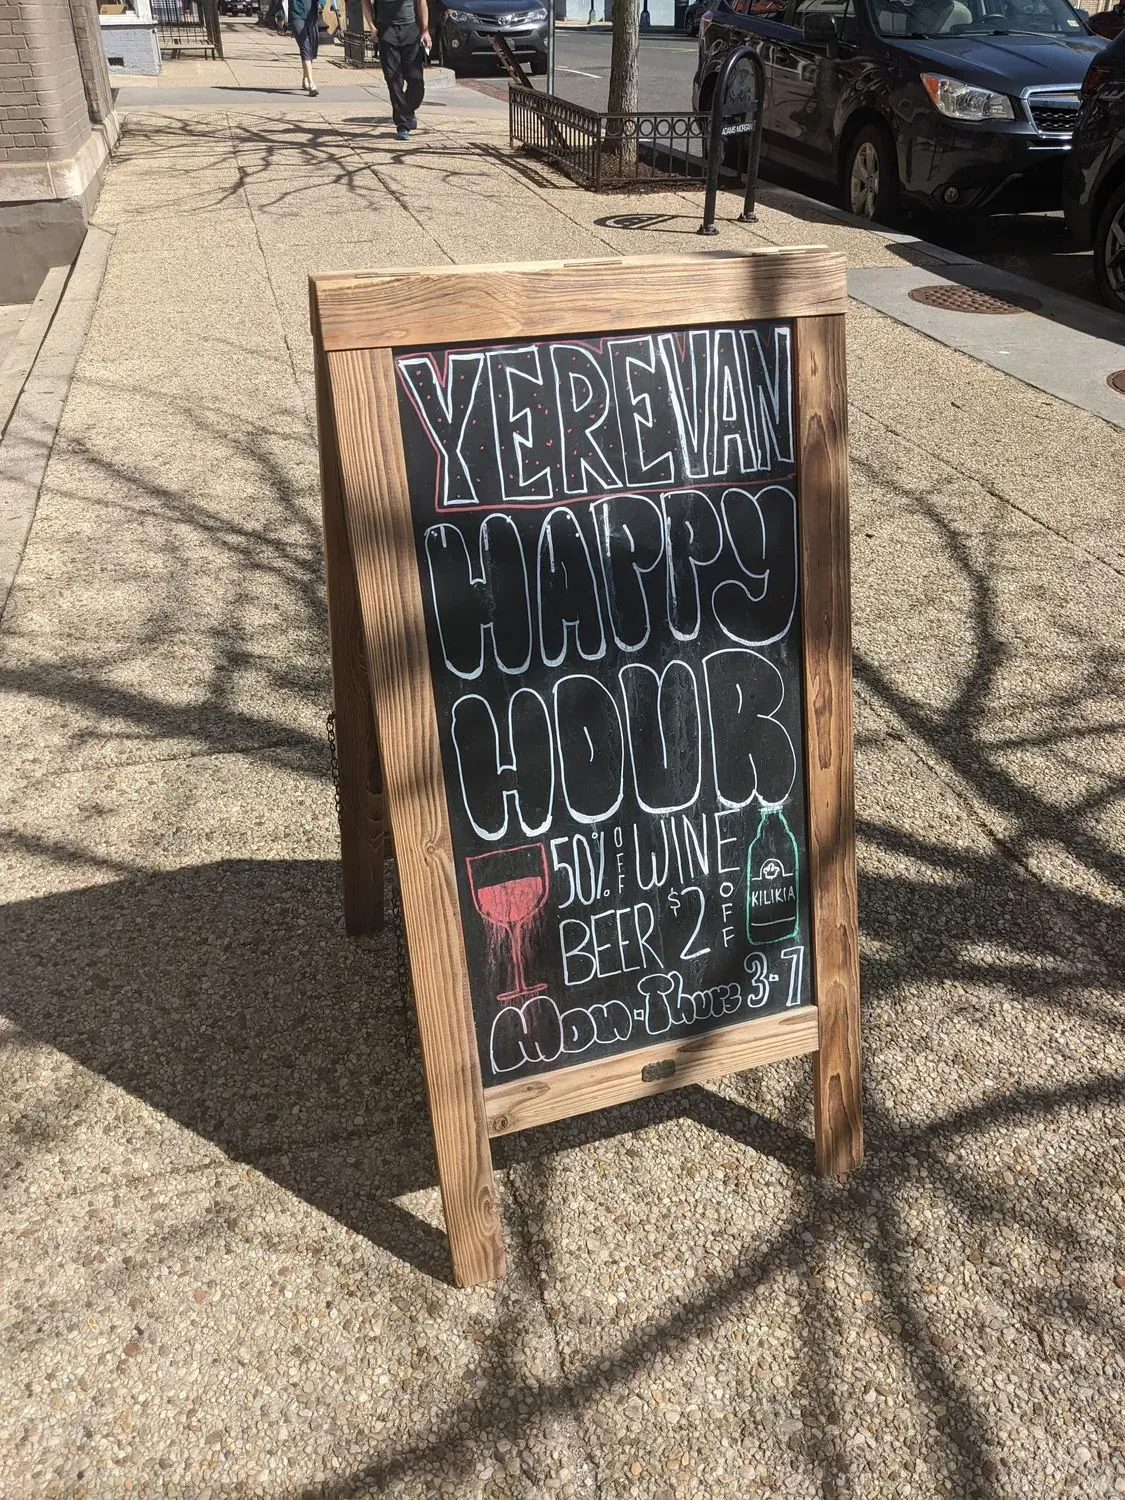 ADAMS MORGAN
YEREVAN
HAPPY
HOUR
50% OFF WINE
BEER $2 OFF
KILIKIA
Mon-Thurs 3-7